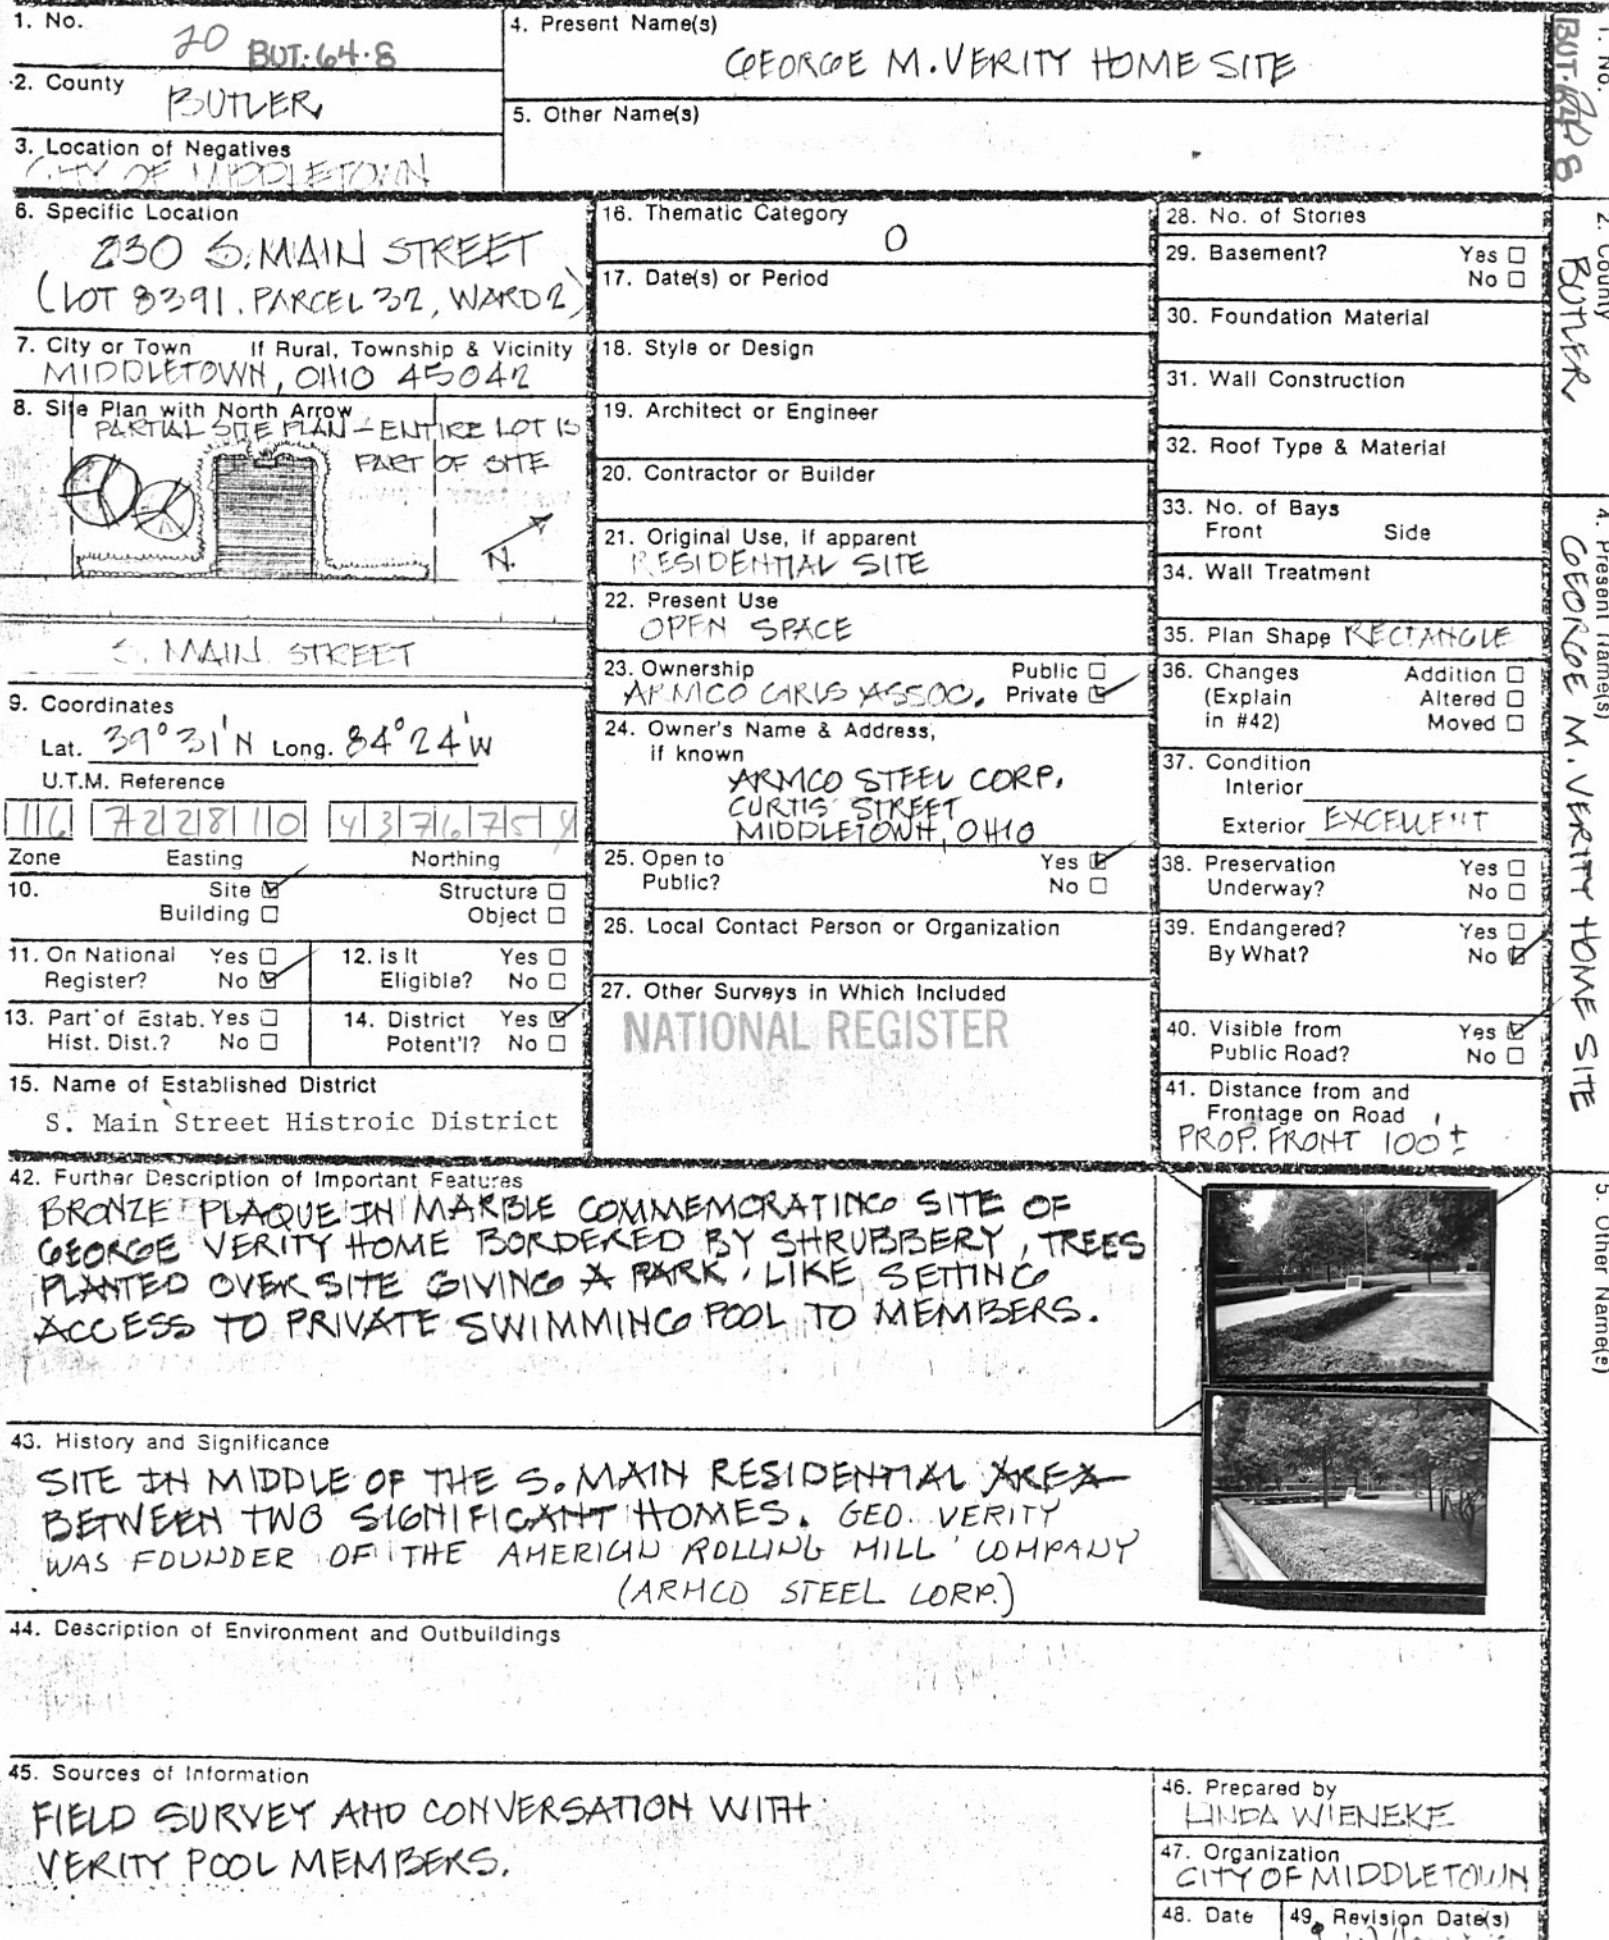 1. No.
20 BUT:64-8
2. County
BUTLER
3. Location of Negatives
CITY OF MIDDLETOWN
4. Present Name(s)
GEORGE M. VERITY HOME SITE
5. Other Name(s)
6. Specific Location
230 S. MAIN STREET
(LOT 8391, PARCEL 32, WARD 2)
7. City or Town If Rural, Township & Vicinity
MIDDLETOWN, OHIO 45042
8. Site Plan with North Arrow
PARTIAL SITE PLAN - ENTIRE LOT IS
PART OF SITE
N.
S. MAIN STREET
9. Coordinates
Lat. 39° 31' N Long. 84° 24' W
U.T.M. Reference
16 722810 437675
Zone Easting Northing
10. Site Structure
Building Object
11. On National Yes
Register? No
12. Is It Yes
Eligible? No
13. Part of Estab. Yes
Hist. Dist.? No
14. District Yes
Potent'l? No
15. Name of Established District
S. Main Street Histroic District
16. Thematic Category
O
17. Date(s) or Period
18. Style or Design
19. Architect or Engineer
20. Contractor or Builder
21. Original Use, if apparent
RESIDENTIAL SITE
22. Present Use
OPEN SPACE
23. Ownership Public
ARMCO GIRLS ASSOC. Private
24. Owner's Name & Address,
if known
ARMCO STEEL CORP.
CURTIS STREET
MIDDLETOWN, OHIO
25. Open to Yes
Public? No
26. Local Contact Person or Organization
27. Other Surveys in Which Included
NATIONAL REGISTER
28. No. of Stories
29. Basement? Yes
No
30. Foundation Material
31. Wall Construction
32. Roof Type & Material
33. No. of Bays
Front Side
34. Wall Treatment
35. Plan Shape RECTANGLE
36. Changes Addition
(Explain Altered
in #42) Moved
37. Condition
Interior
Exterior EXCELLENT
38. Preservation Yes
Underway? No
39. Endangered? Yes
By What? No
40. Visible from Yes
Public Road? No
41. Distance from and
Frontage on Road
PROP. FRONT 100' ±
42. Further Description of Important Features
BRONZE PLAQUE IN MARBLE COMMEMORATING SITE OF
GEORGE VERITY HOME BORDERED BY SHRUBBERY, TREES
PLANTED OVER SITE GIVING A PARK-LIKE SETTING
ACCESS TO PRIVATE SWIMMING POOL TO MEMBERS.
43. History and Significance
SITE IN MIDDLE OF THE S. MAIN RESIDENTIAL AREA
BETWEEN TWO SIGNIFICANT HOMES. GEO. VERITY
WAS FOUNDER OF THE AMERICAN ROLLING MILL COMPANY
(ARMCO STEEL CORP.)
44. Description of Environment and Outbuildings
45. Sources of Information
FIELD SURVEY AND CONVERSATION WITH
VERITY POOL MEMBERS.
46. Prepared by
LINDA WIENEKE
47. Organization
CITY OF MIDDLETOWN
48. Date
49. Revision Date(s)
1. No.
BUT-64-8
2. County
BUTLER
4. Present Name(s)
GEORGE M. VERITY HOME SITE
5. Other Name(s)